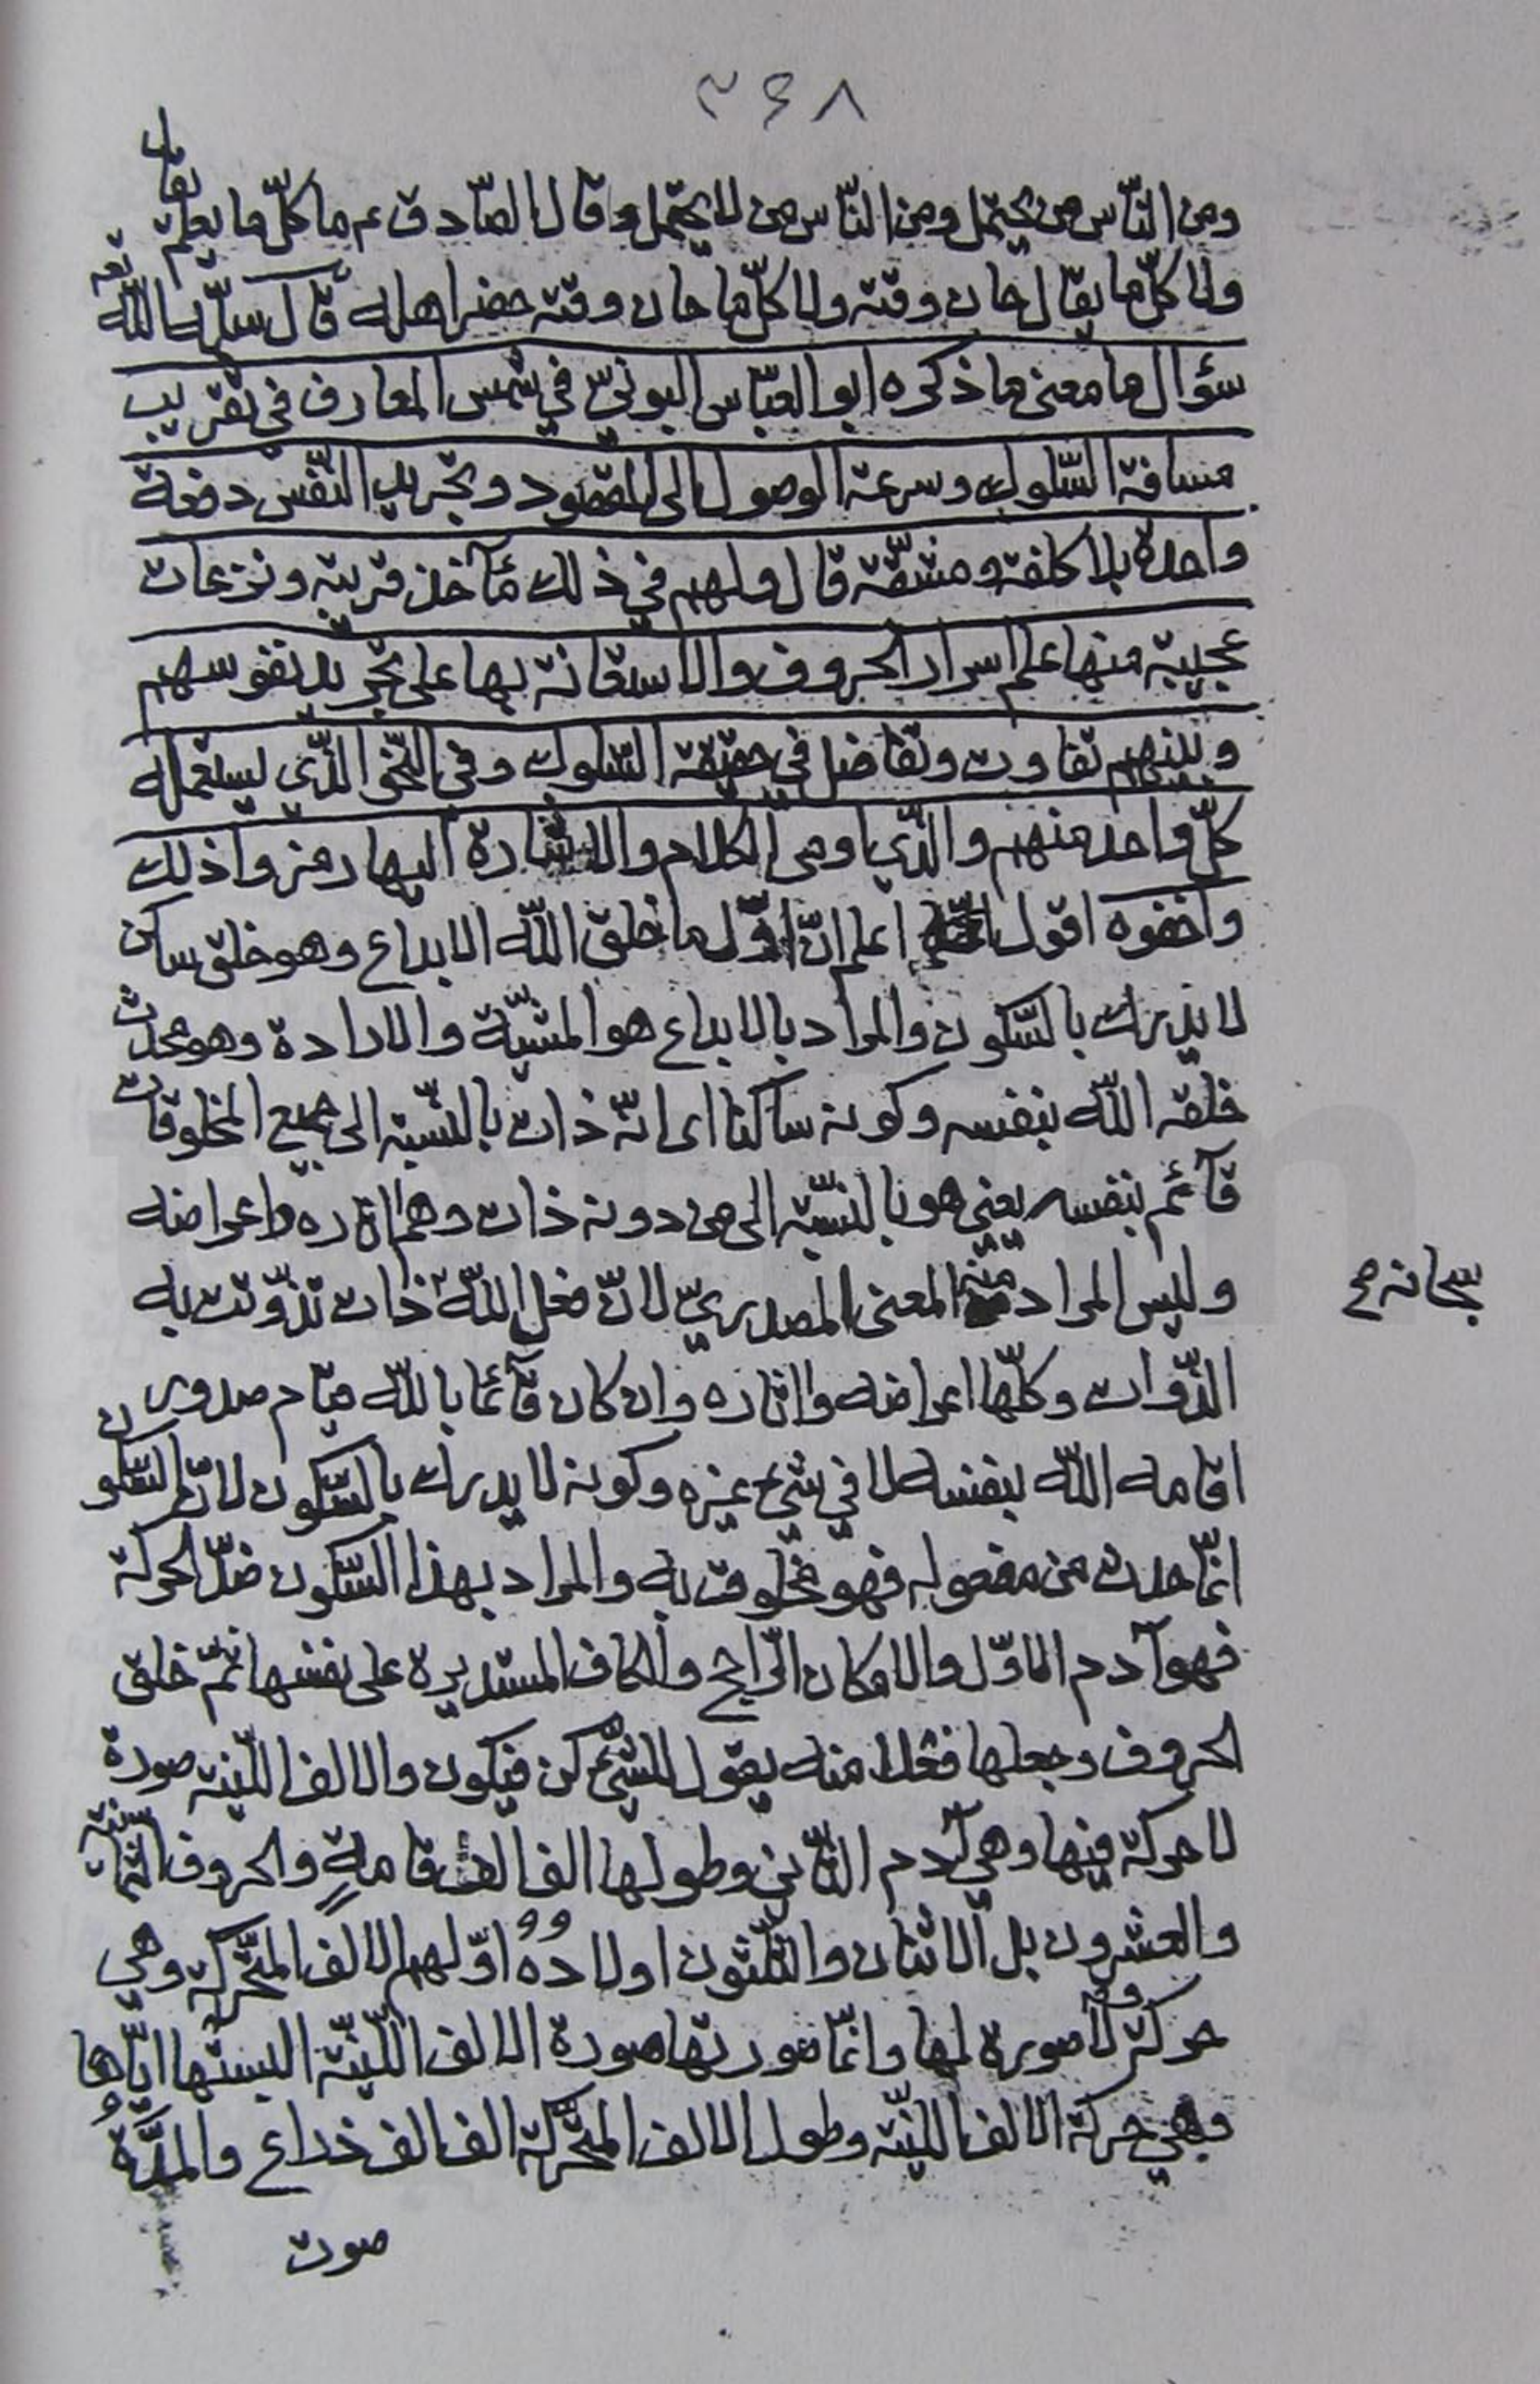 ٣٤٨
ومن الناس من يحتمل ومن الناس من لا يحتمل وقال الصّادق ع م ما كلّ ما يعلم يقال
ولا كلّ ما يقال حان وقته ولا كلّ ما حان وقته حضر اهله قال سلّمه اللّه تعـ
سؤال ما معنى ما ذكره ابو العبّاس البونيّ في شمس المعارف في تقريب
مسافة السّلوك وسرعة الوصول الى المقصود وتجريد النّفس دفعة
واحدة بلا كلفة ومشقّة قال ولهم في ذلك مآخذ قريبة ونزعات
عجيبة منها علم اسرار الحروف والاستعانة بها على تجريد نفوسهم
وبينهم تفاوت وتفاضل في حقيقة السّلوك وفي النّحو الّذي يستعمله
كلّ واحد منهم والّذي اومى الكلام والاشارة اليها رمزوا ذلك
واخفوه اقول اعلم انّ اوّل ما خلق اللّه الابداع وهو خلق ساكن
لا يدرك بالسّكون والمراد بالابداع هو المشيّة والارادة وهو محدث
خلقه اللّه بنفسه وكونه ساكنا اى انّه ذات بالنّسبة الى جميع المخلوقات
قآئم بنفسه يعني هو بالنّسبة الى من دونه ذات وهم اثاره واعراضه
وليس المراد منه المعنى المصدريّ لانّ فعل اللّه ذات تذوّتت به
سبحانه ص
الذّوات وكلّها اعراضه واثاره وان كان قآئما باللّه قيام صدور
اقامه اللّه بنفسه لا في شيء غيره وكونه لا يدرك بالسّكون لانّ السّكون
انّما حدث من مفعوله فهو مخلوق به والمراد بهذا السّكون ضدّ الحركة
فهو آدم الاوّل والامكان الرّاجح والكاف المستديرة على نفسها ثمّ خلق
الحروف وجعلها فعلا منه يقول للشّيء كن فيكون والالف اللّينة صورة
لا حركة فيها وهي آدم الثّاني وطولها الف الف قامةٍ والحروف الثّمانية
والعشرون بل الاثنان والثلثون اولاده اوّلهم الالف المتحرّكة وهي
حركة لا صورة لها وانّما صورتها صورة الالف اللّينة البستها ايّاها
وهي حركة الالف اللّينة وطول الالف المتحرّكة الف الف ذراع والمدّة
صوت